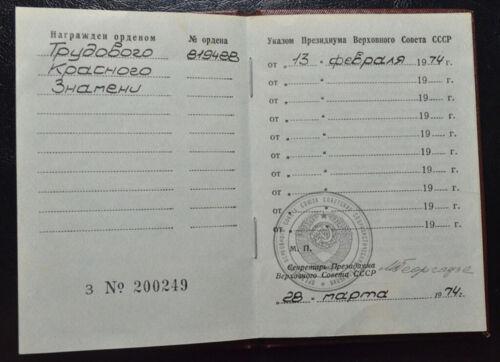 Награжден орденом № ордена
Трудового 819488
Красного
Знамени
З № 200249
Указом Президиума Верховного Совета СССР
от „ 13 " февраля 1974 г.
от „ " 19 г.
от „ " 19 г.
от „ " 19 г.
от „ " 19 г.
от „ " 19 г.
от „ " 19 г.
от „ " 19 г.
от „ " 19 г.
М. П.
Секретарь Президиума
Верховного Совета СССР
„ 28 " марта 1974 г.